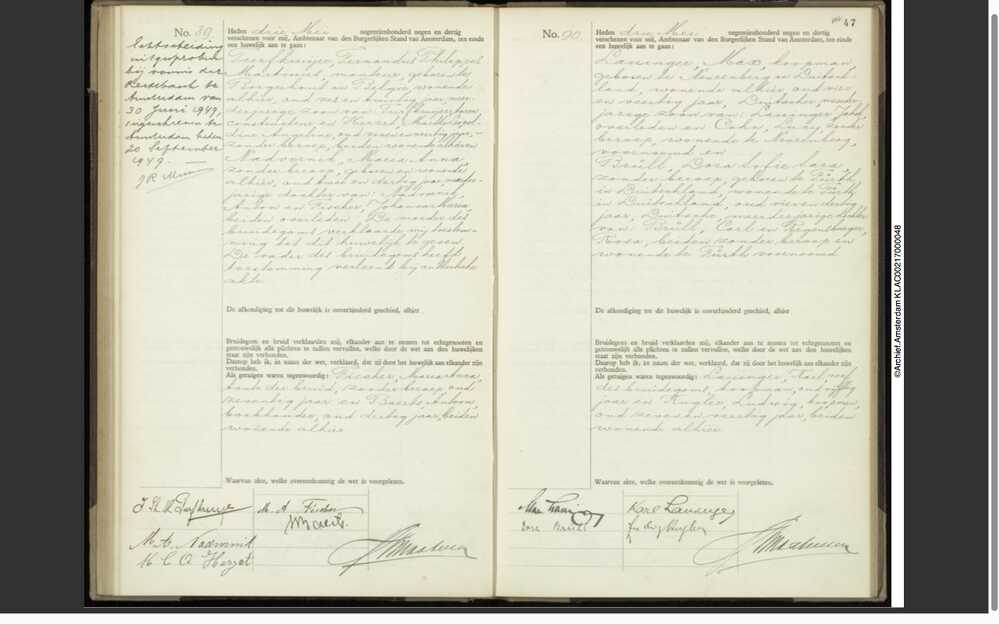 No. 89
Heden drie Mei negentienhonderd negen en dertig
verschenen voor mij, Ambtenaar van den Burgerlijken Stand van Amsterdam, ten einde
een huwelijk aan te gaan:
Echtscheiding
uitgesproken
bij vonnis der
Rechtbank te
Amsterdam van
30 Juni 1949,
ingeschreven te
Amsterdam heden
20 September
1949.
Fernandus Philippus
Marthinus, monteur, geboren te
Borgerhout in België, wonende
alhier, oud zes en twintig jaar, meer-
derjarige zoon van
en Herzet,
dine Angeline, oud jaar,
zonder beroep, beiden wonende alhier en
Nadvornik, Maria Anna,
zonder beroep, geboren en wonende
alhier, oud twee en dertig jaar, meerder-
jarige dochter van: Nadvornik,
Anton en Fischer, Johanna Maria,
beiden overleden. De moeder des
bruidegoms verklaarde mij toestem-
ming tot dit huwelijk te geven.
De vader des bruidegoms heeft
toestemming verleend bij authentieke
akte.
De afkondiging tot dit huwelijk is onverhinderd geschied, alhier
Bruidegom en bruid verklaarden mij, elkander aan te nemen tot echtgenooten en
getrouwelijk alle plichten te zullen vervullen, welke door de wet aan den huwelijken
staat zijn verbonden.
Daarop heb ik, in naam der wet, verklaard, dat zij door het huwelijk aan elkander zijn
verbonden.
Als getuigen waren tegenwoordig: Fischer, Maria Anna,
tante der bruid, zonder beroep, oud
zeventig jaar en Baerts, Antoon
boekhouder, oud dertig jaar, beiden
wonende alhier
Waarvan akte, welke overeenkomstig de wet is voorgelezen.
M. A. Fischer
M. A. Nadvornik
M C A Herzet
47
No. 90
Heden drie Mei negentienhonderd negen en dertig
verschenen voor mij, Ambtenaar van den Burgerlijken Stand van Amsterdam, ten einde
een huwelijk aan te gaan:
Lausinger, Max, koopman,
geboren te Neurenberg in Duitsch-
land, wonende alhier, oud vier
en veertig jaar, Duitscher, meerder-
jarige zoon van: Lausinger,
overleden en Cohn, Lucy, zonder
beroep, wonende te Neurenberg,
voornoemd en
Brüll, Dora Sofie Sara,
zonder beroep, geboren te Fürth
in Duitschland, wonende te Fürth
in Duitschland, oud vier en dertig
jaar, Duitsche, meerderjarige dochter
van: Brüll, Carl en Regensburger,
Rosa, beiden zonder beroep en
wonende te Fürth voornoemd
De afkondiging tot dit huwelijk is onverhinderd geschied, alhier
Bruidegom en bruid verklaarden mij, elkander aan te nemen tot echtgenooten en
getrouwelijk alle plichten te zullen vervullen, welke door de wet aan den huwelijken
staat zijn verbonden.
Daarop heb ik, in naam der wet, verklaard, dat zij door het huwelijk aan elkander zijn
verbonden.
Als getuigen waren tegenwoordig: Lausinger, Karl, neef
des bruidegoms, koopman, oud vijftig
jaar en Kugler, Ludwig, koopman,
oud zeven en veertig jaar, beiden
wonende alhier
Waarvan akte, welke overeenkomstig de wet is voorgelezen.
Karl Lausinger
©Archief.Amsterdam KLAC00217000048